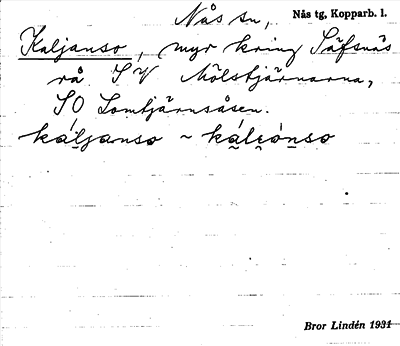 Nås sn, Nås tg, Kopparb. l.
Kaljanso, myr kring Säfsnäs
rå SV Mölstjärnarna,
SO Lomtjärnsåsen.
káljanso ~ kálgónso
Bror Lindén 1931